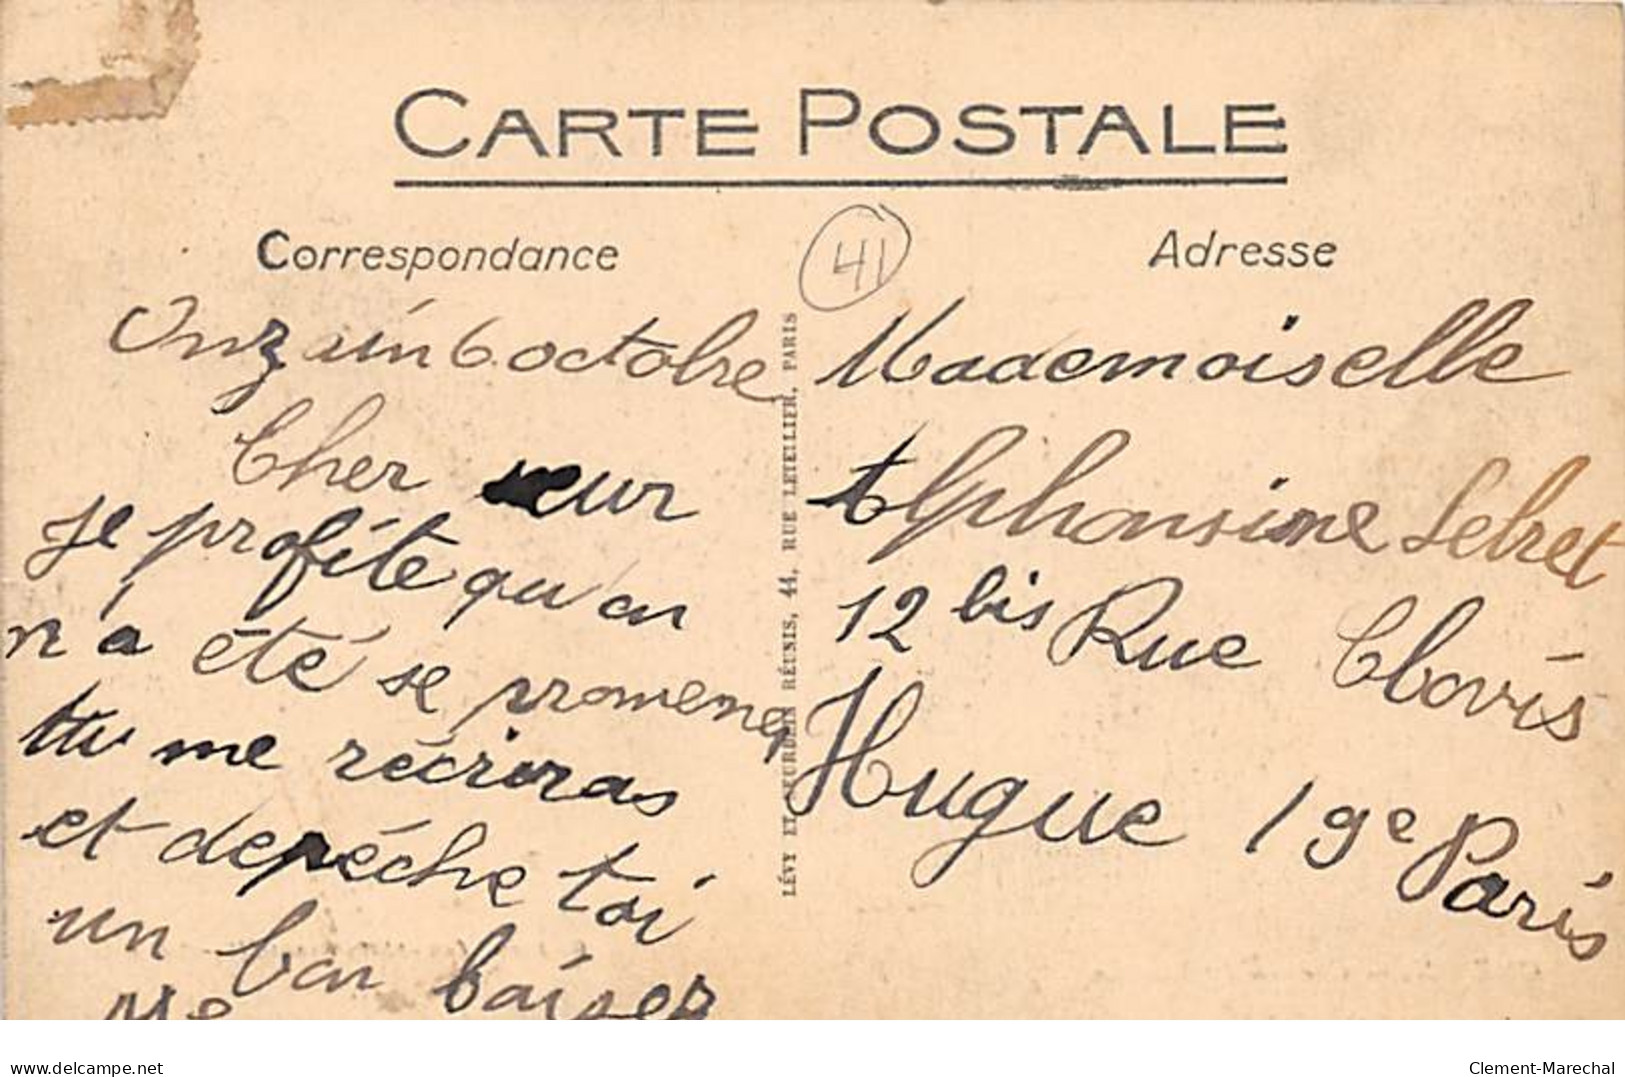 CARTE POSTALE
Correspondance
Onzain 6 octobre
Cher seur
je profite qu'on
n'a été se promener
tu me récriras
et depéche toi
un bon baiser
41
LÉVY ET NEURDEIN RÉUNIS, 44, RUE LETELLIER, PARIS
Adresse
Mademoiselle
Alphonsine Lebret
12 bis Rue Clovis
Hugue 19e Paris
delcampe.net
Clement-Marechal